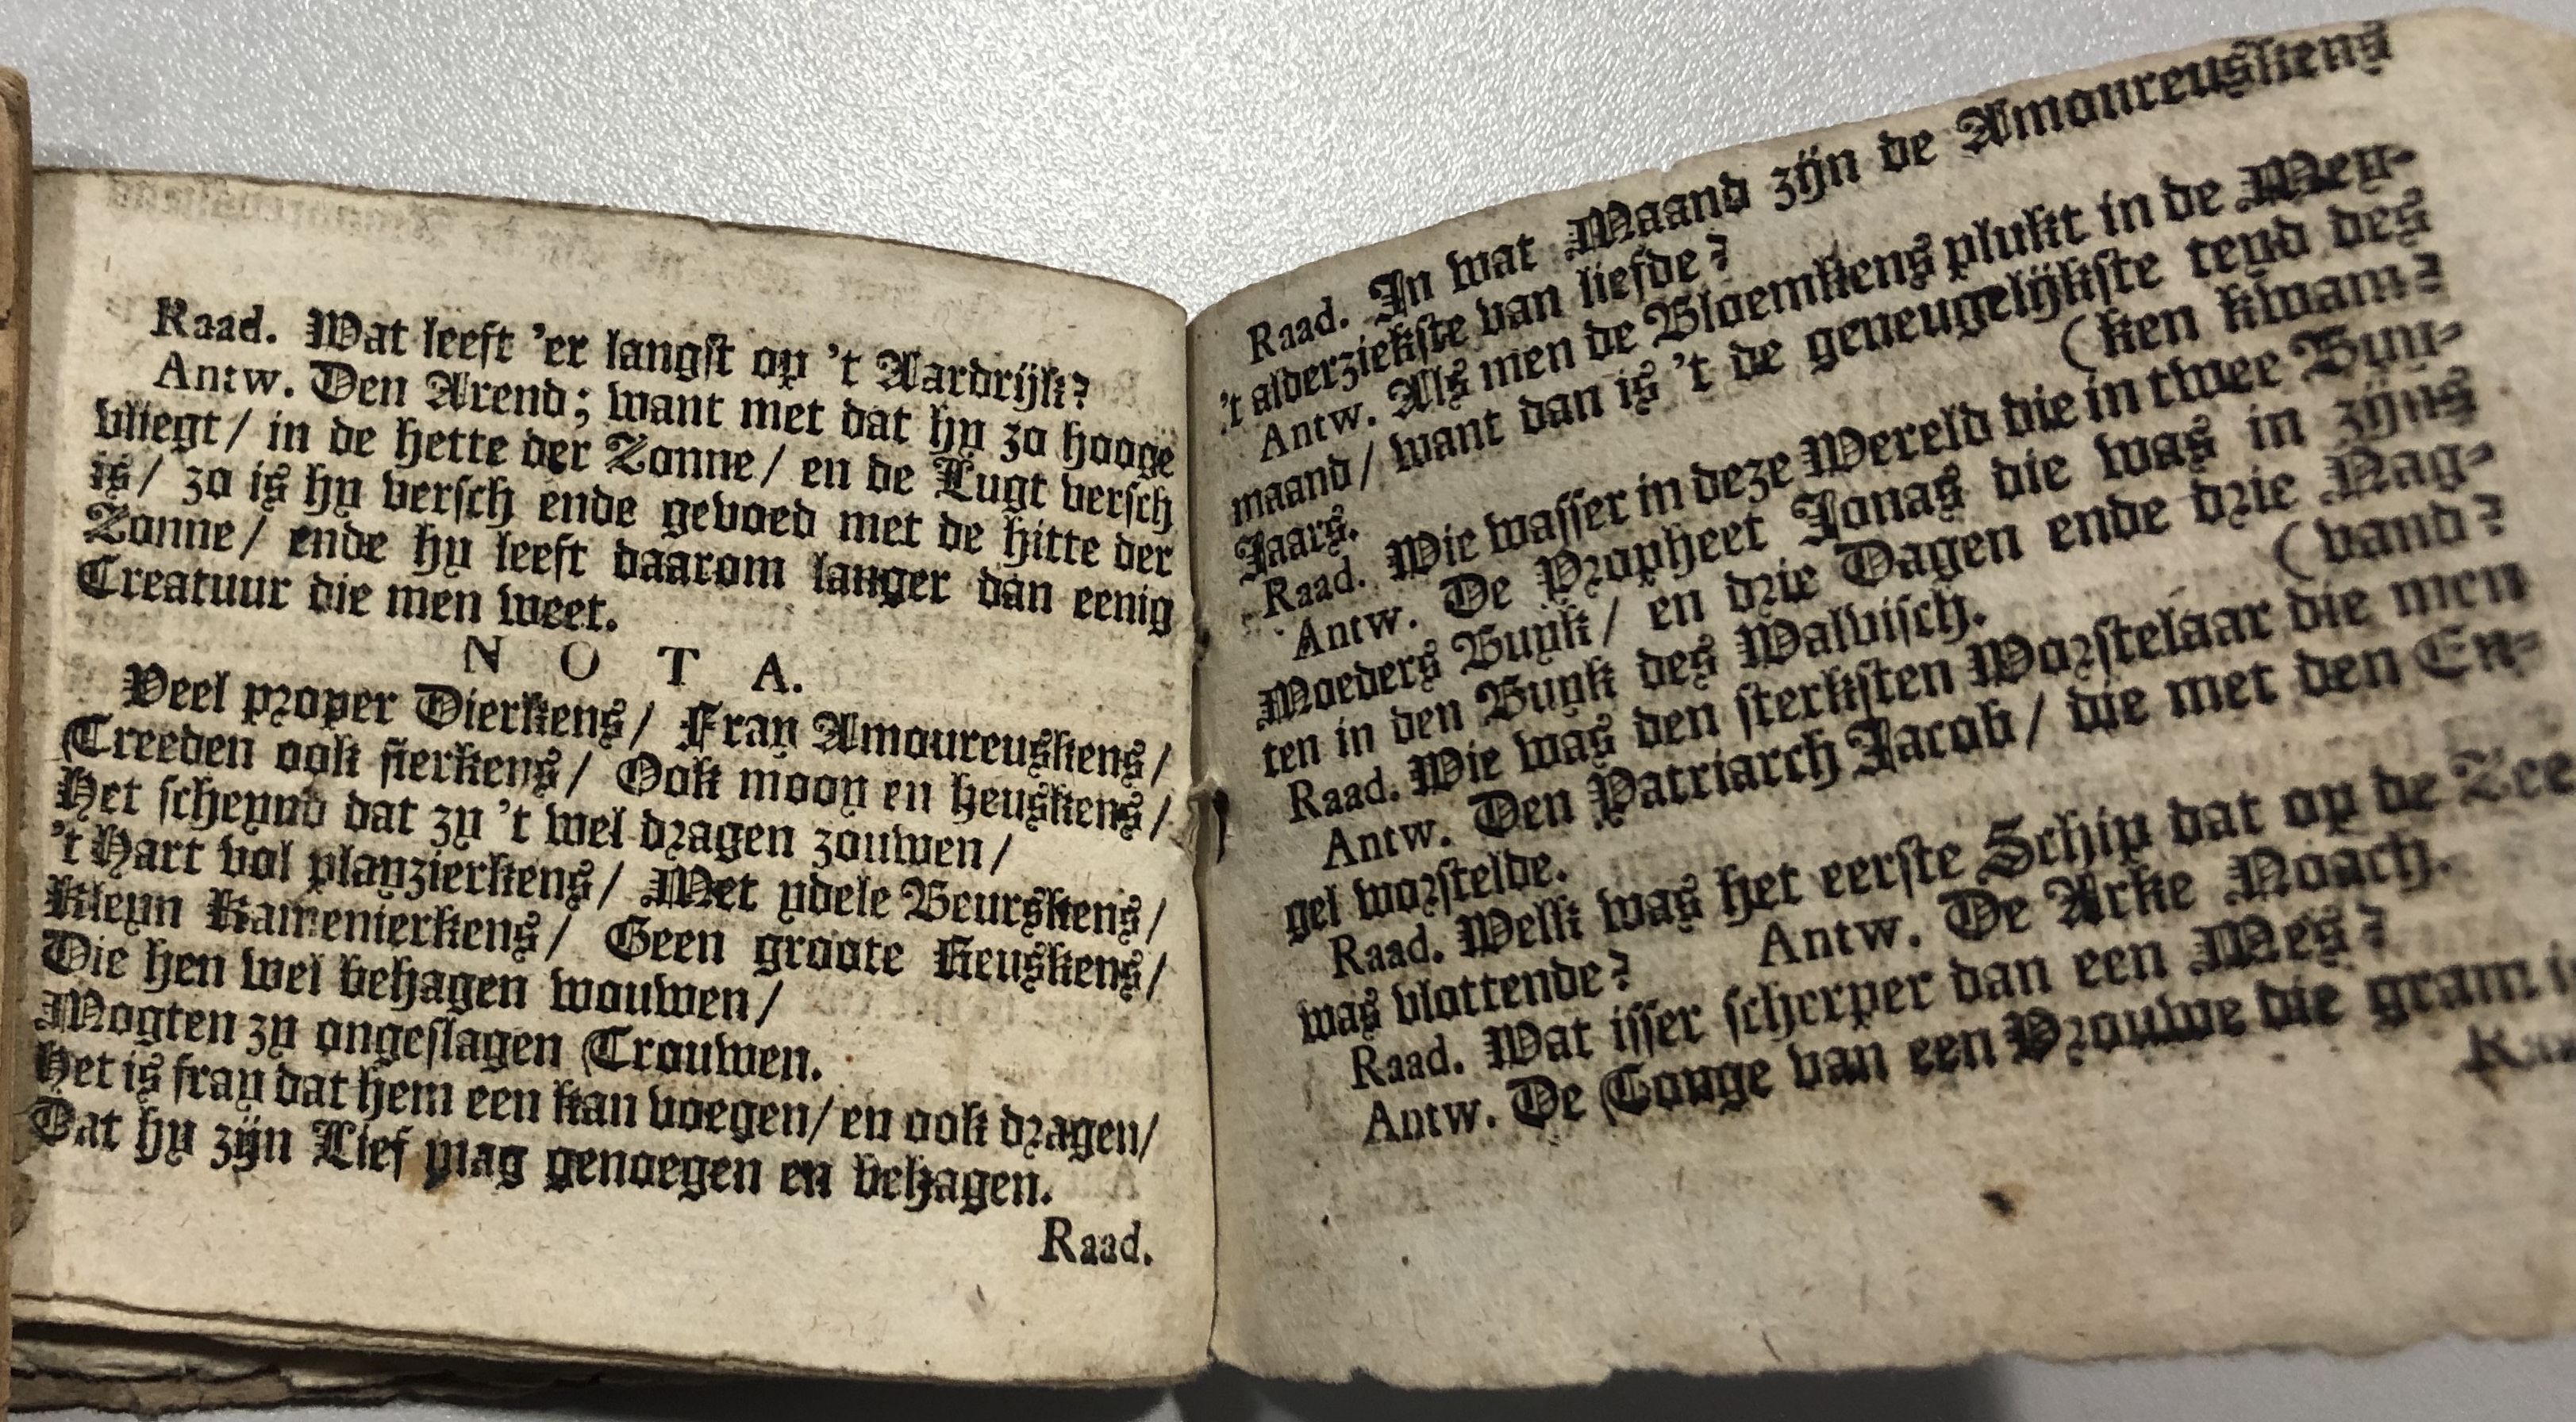 Raad. Wat leeft 'er langst op 't Aardrijk?
Antw. Den Arend; want met dat hy zo hooge
vliegt / in de hette der Zonne / en de Lugt versch
is / zo is hy versch ende gevoed met de hitte der
Zonne / ende hy leeft daarom langer dan eenig
Creatuur die men weet.
N O T A.
Veel proper Dierkens / Fray Amoureuskens /
Treeden ook fierkens / Ook mooy en heuskens /
Het scheynd dat zy 't wel dragen zouwen /
't Hart vol playzierkens / Met ydele Beurskens /
Kleyn Kamenierkens / Geen groote Keuskens /
Die hen wel behagen wouwen /
Mogten zy ongeslagen Trouwen.
Het is fray dat hem een kan voegen / en ook dragen /
Dat hy zijn Lief mag genoegen en behagen.
Raad.
Raad. In wat Maand zijn de Amoureuskens
't alderziekste van liefde?
Antw. Als men de Bloemkens plukt in de Mey-
maand / want dan is 't de geneugelijkste teyd des
Jaars. (ken kwam?
Raad. Wie wasser in deze Wereld die in twee Buy-
Antw. De Propheet Jonas die was in zijns
Moeders Buyk / en drie Dagen ende drie Nag-
ten in den Buyk des Walvisch. (vand?
Raad. Wie was den sterksten Worstelaar die men
Antw. Den Patriarch Jacob / die met den En-
gel worstelde.
Raad. Welk was het eerste Schip dat op de Zee
was vlottende? Antw. De Arke Noach.
Raad. Wat isser scherper dan een Mes?
Antw. De Tonge van een Vrouwe die gram is